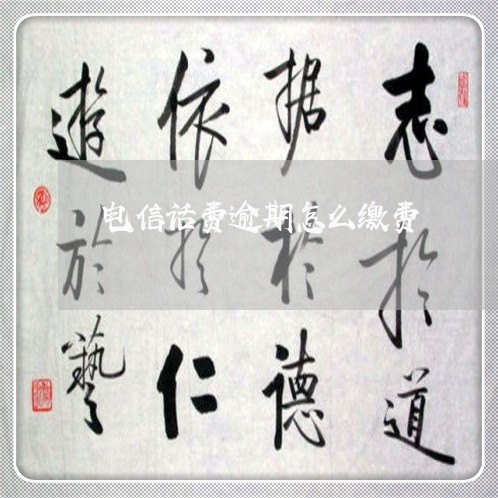 志於道
据於德
依於仁
遊於藝
电信话费逾期怎么缴费